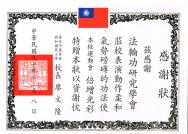 感謝狀
茲感謝
法輪功研究學會
蒞校表演動作柔和
氣勢磅礡的功法使
本校運動會倍增光彩
特贈本狀以資謝忱
校長廖文隆
中華民國